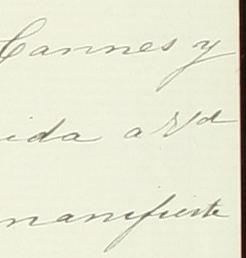 Cannes y
ida a Vd
manifieste